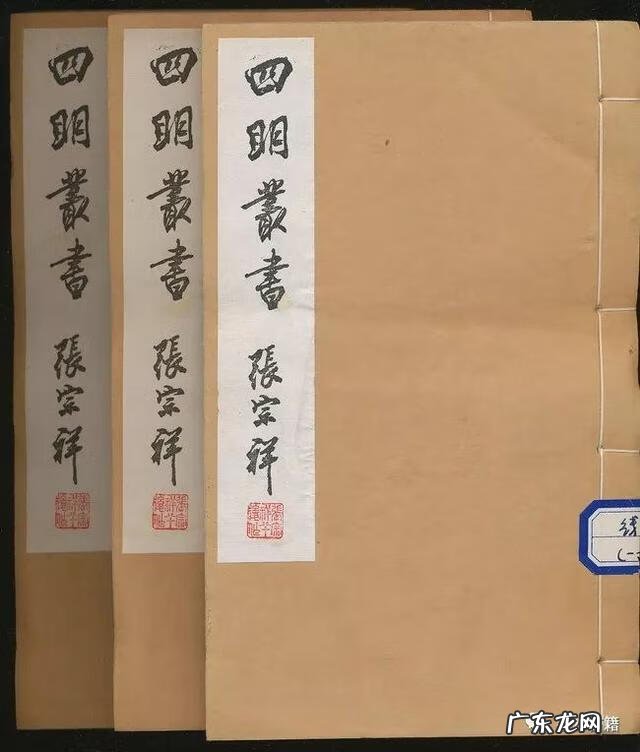 四明叢書 張宗祥
四明叢書 張宗祥
四明叢書 張宗祥
广东龙网
籍